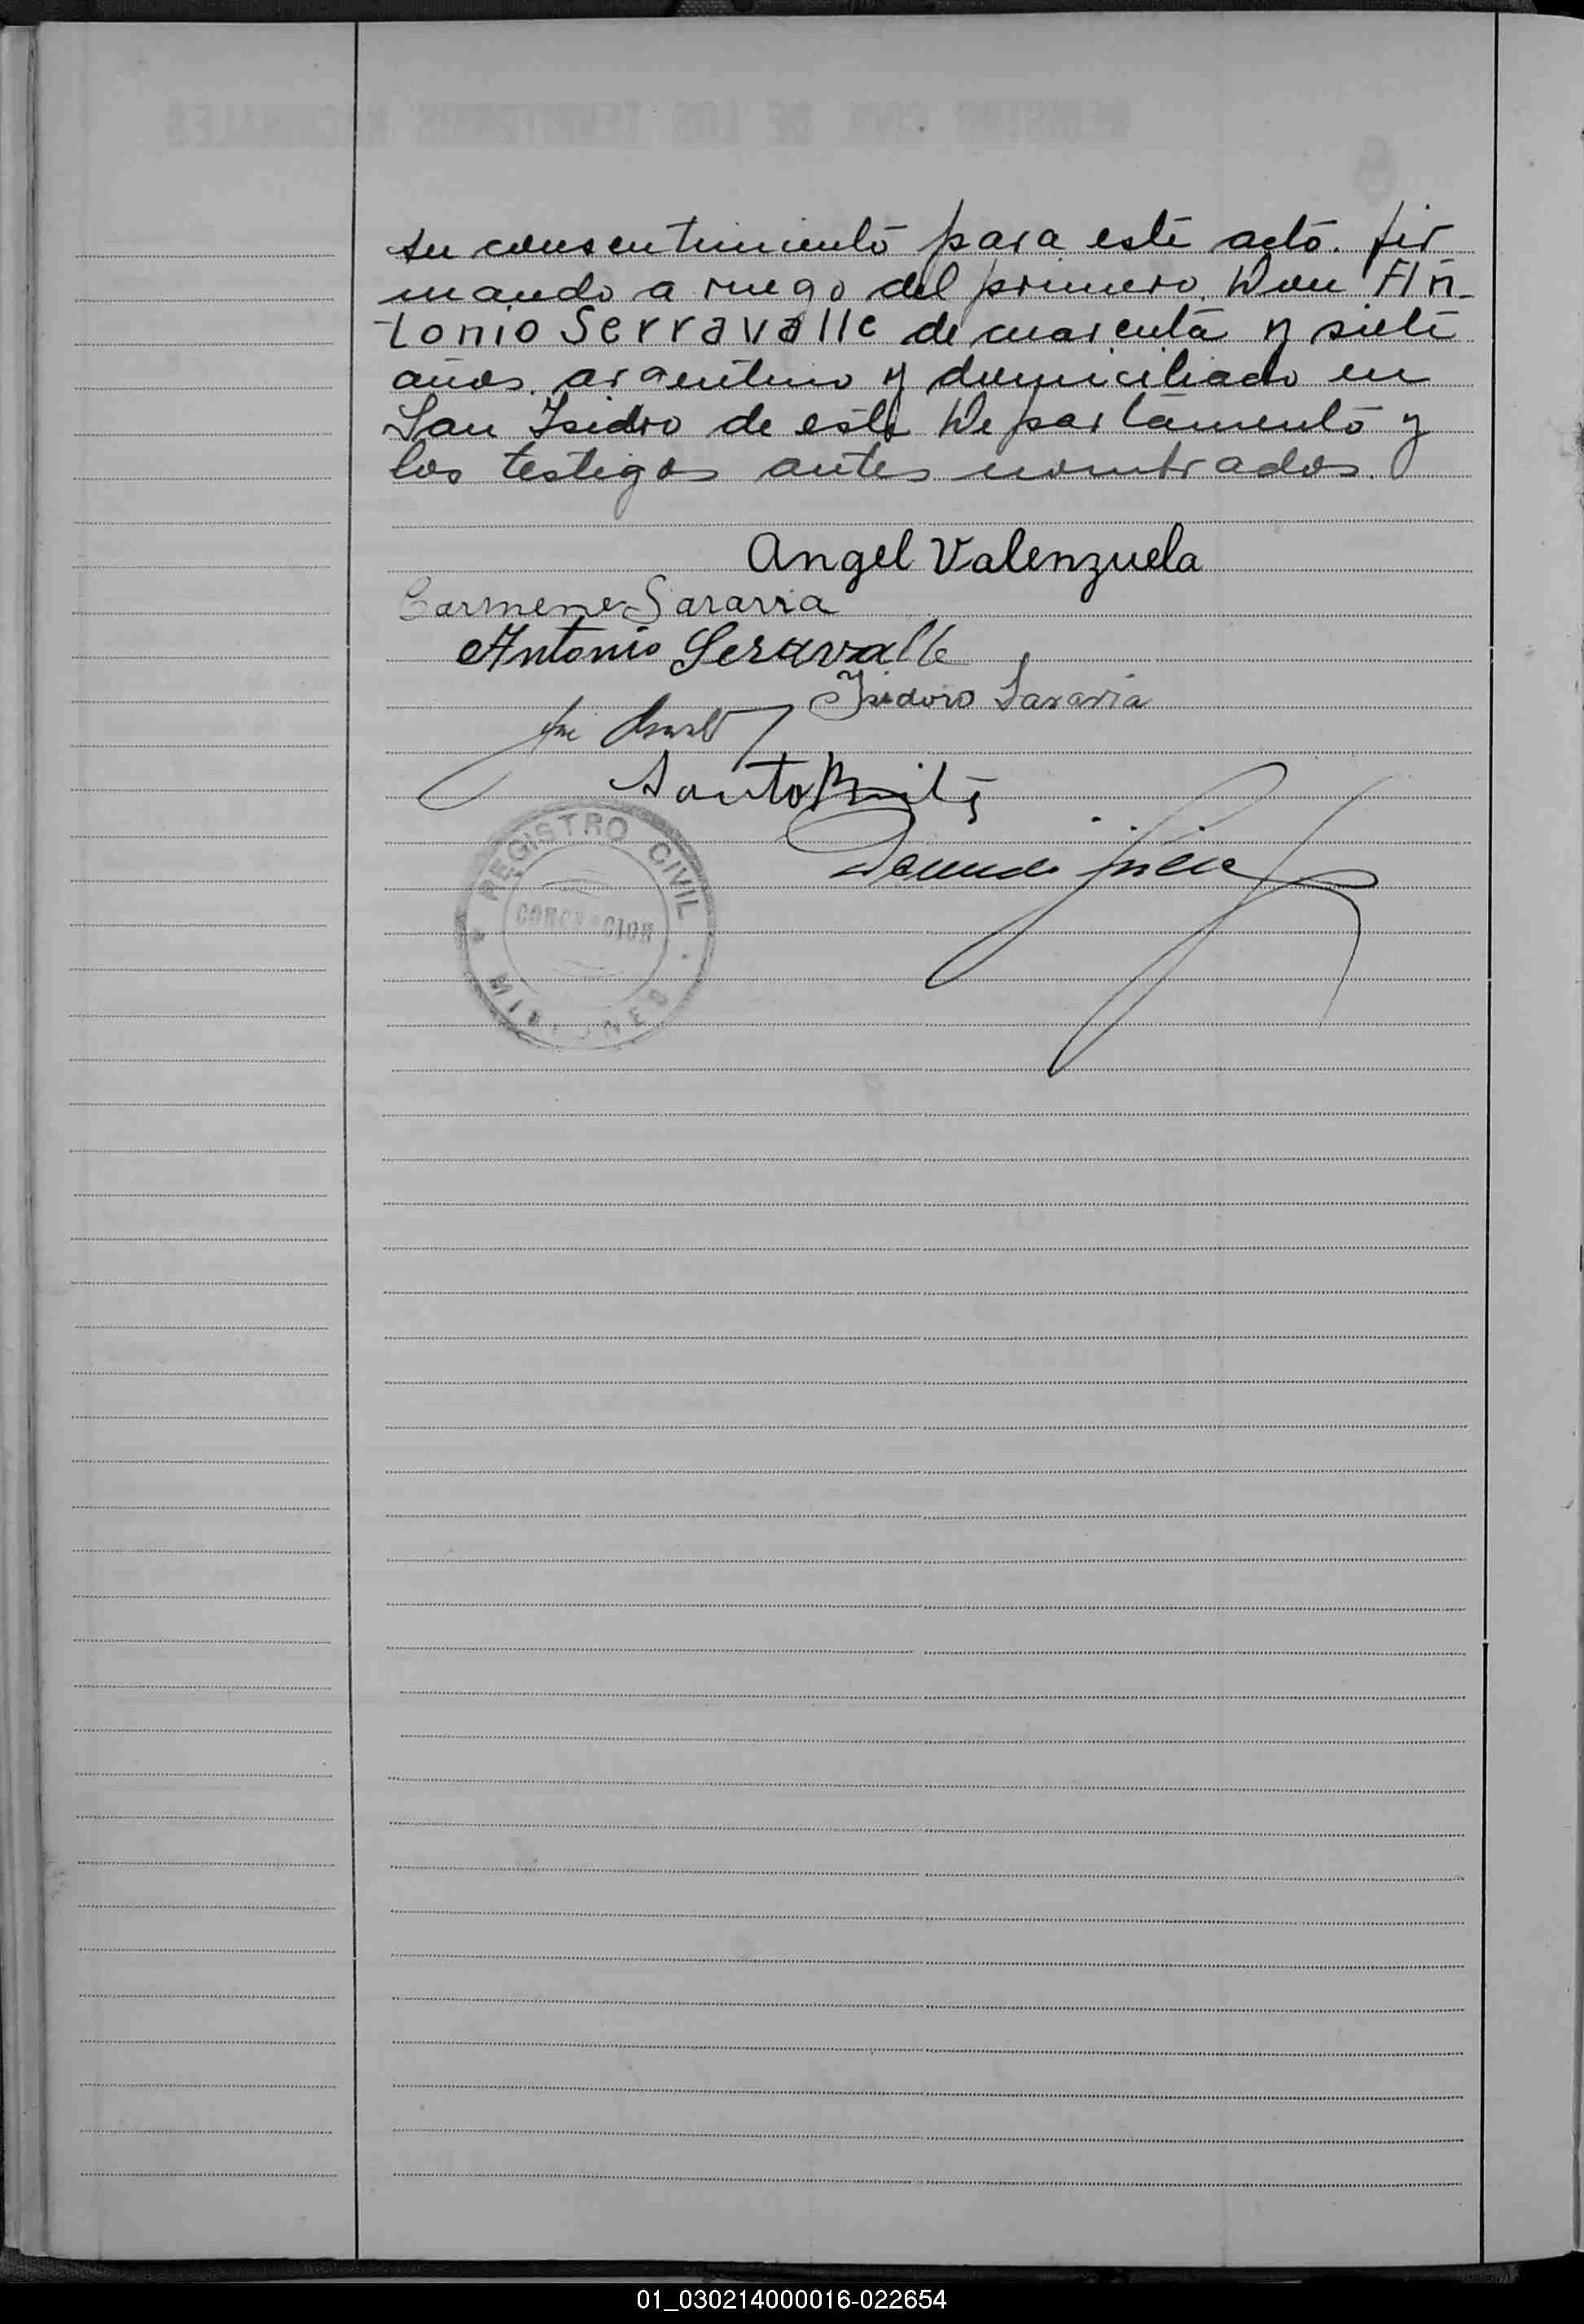 su consentimiento para este acto. fir
mando a ruego del primero. Don An-
tonio Serravalle de cuarenta y siete
años. argentino y domiciliado en
San Isidro de este Departamento y
los testigos antes nombrados.
Angel Valenzuela
Carmen Sararia
Antonio Seravalle
Isidoro Sararia
Santo
REGISTRO CIVIL
CONCEPCION
MISIONES
01_030214000016-022654